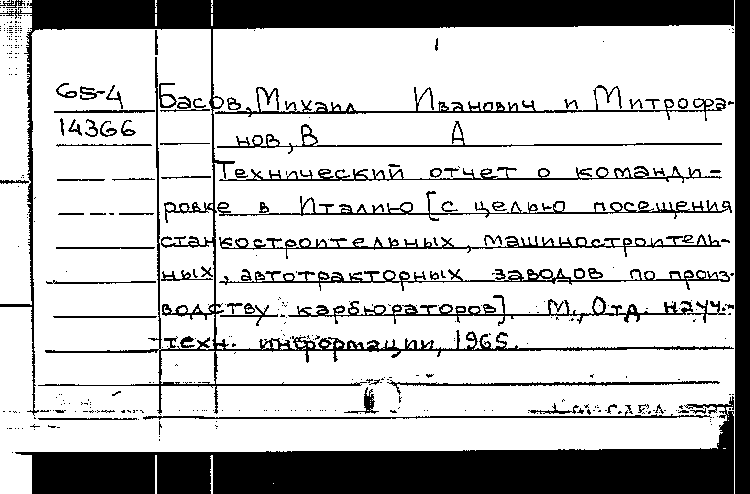 65-4 Басов, Михаил Иванович и Митрофа-
14366 нов, В А
Технический отчет о команди-
ровке в Италию [с целью посещения
станкостроительных, машиностроитель-
ных, автотракторных заводов по произ-
водству карбюраторов]. М., Отд. науч.-
техн. информации, 1965.